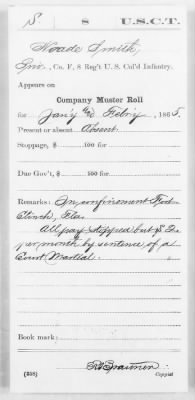 S 8 U.S.C.T.
Noade Smith,
Pvt., Co. F, 8 Reg't U. S. Col'd Infantry.
Appears on
Company Muster Roll
for Jan'y & Feb'ry, 1865.
Present or absent Absent
Stoppage, $ 100 for
Due Gov't, $ 100 for
Remarks: In confinement Fort
Clinch, Fla.
All pay stopped but $2
per month by sentence of a
Court Martial.
Book mark:
(358) Copyist.